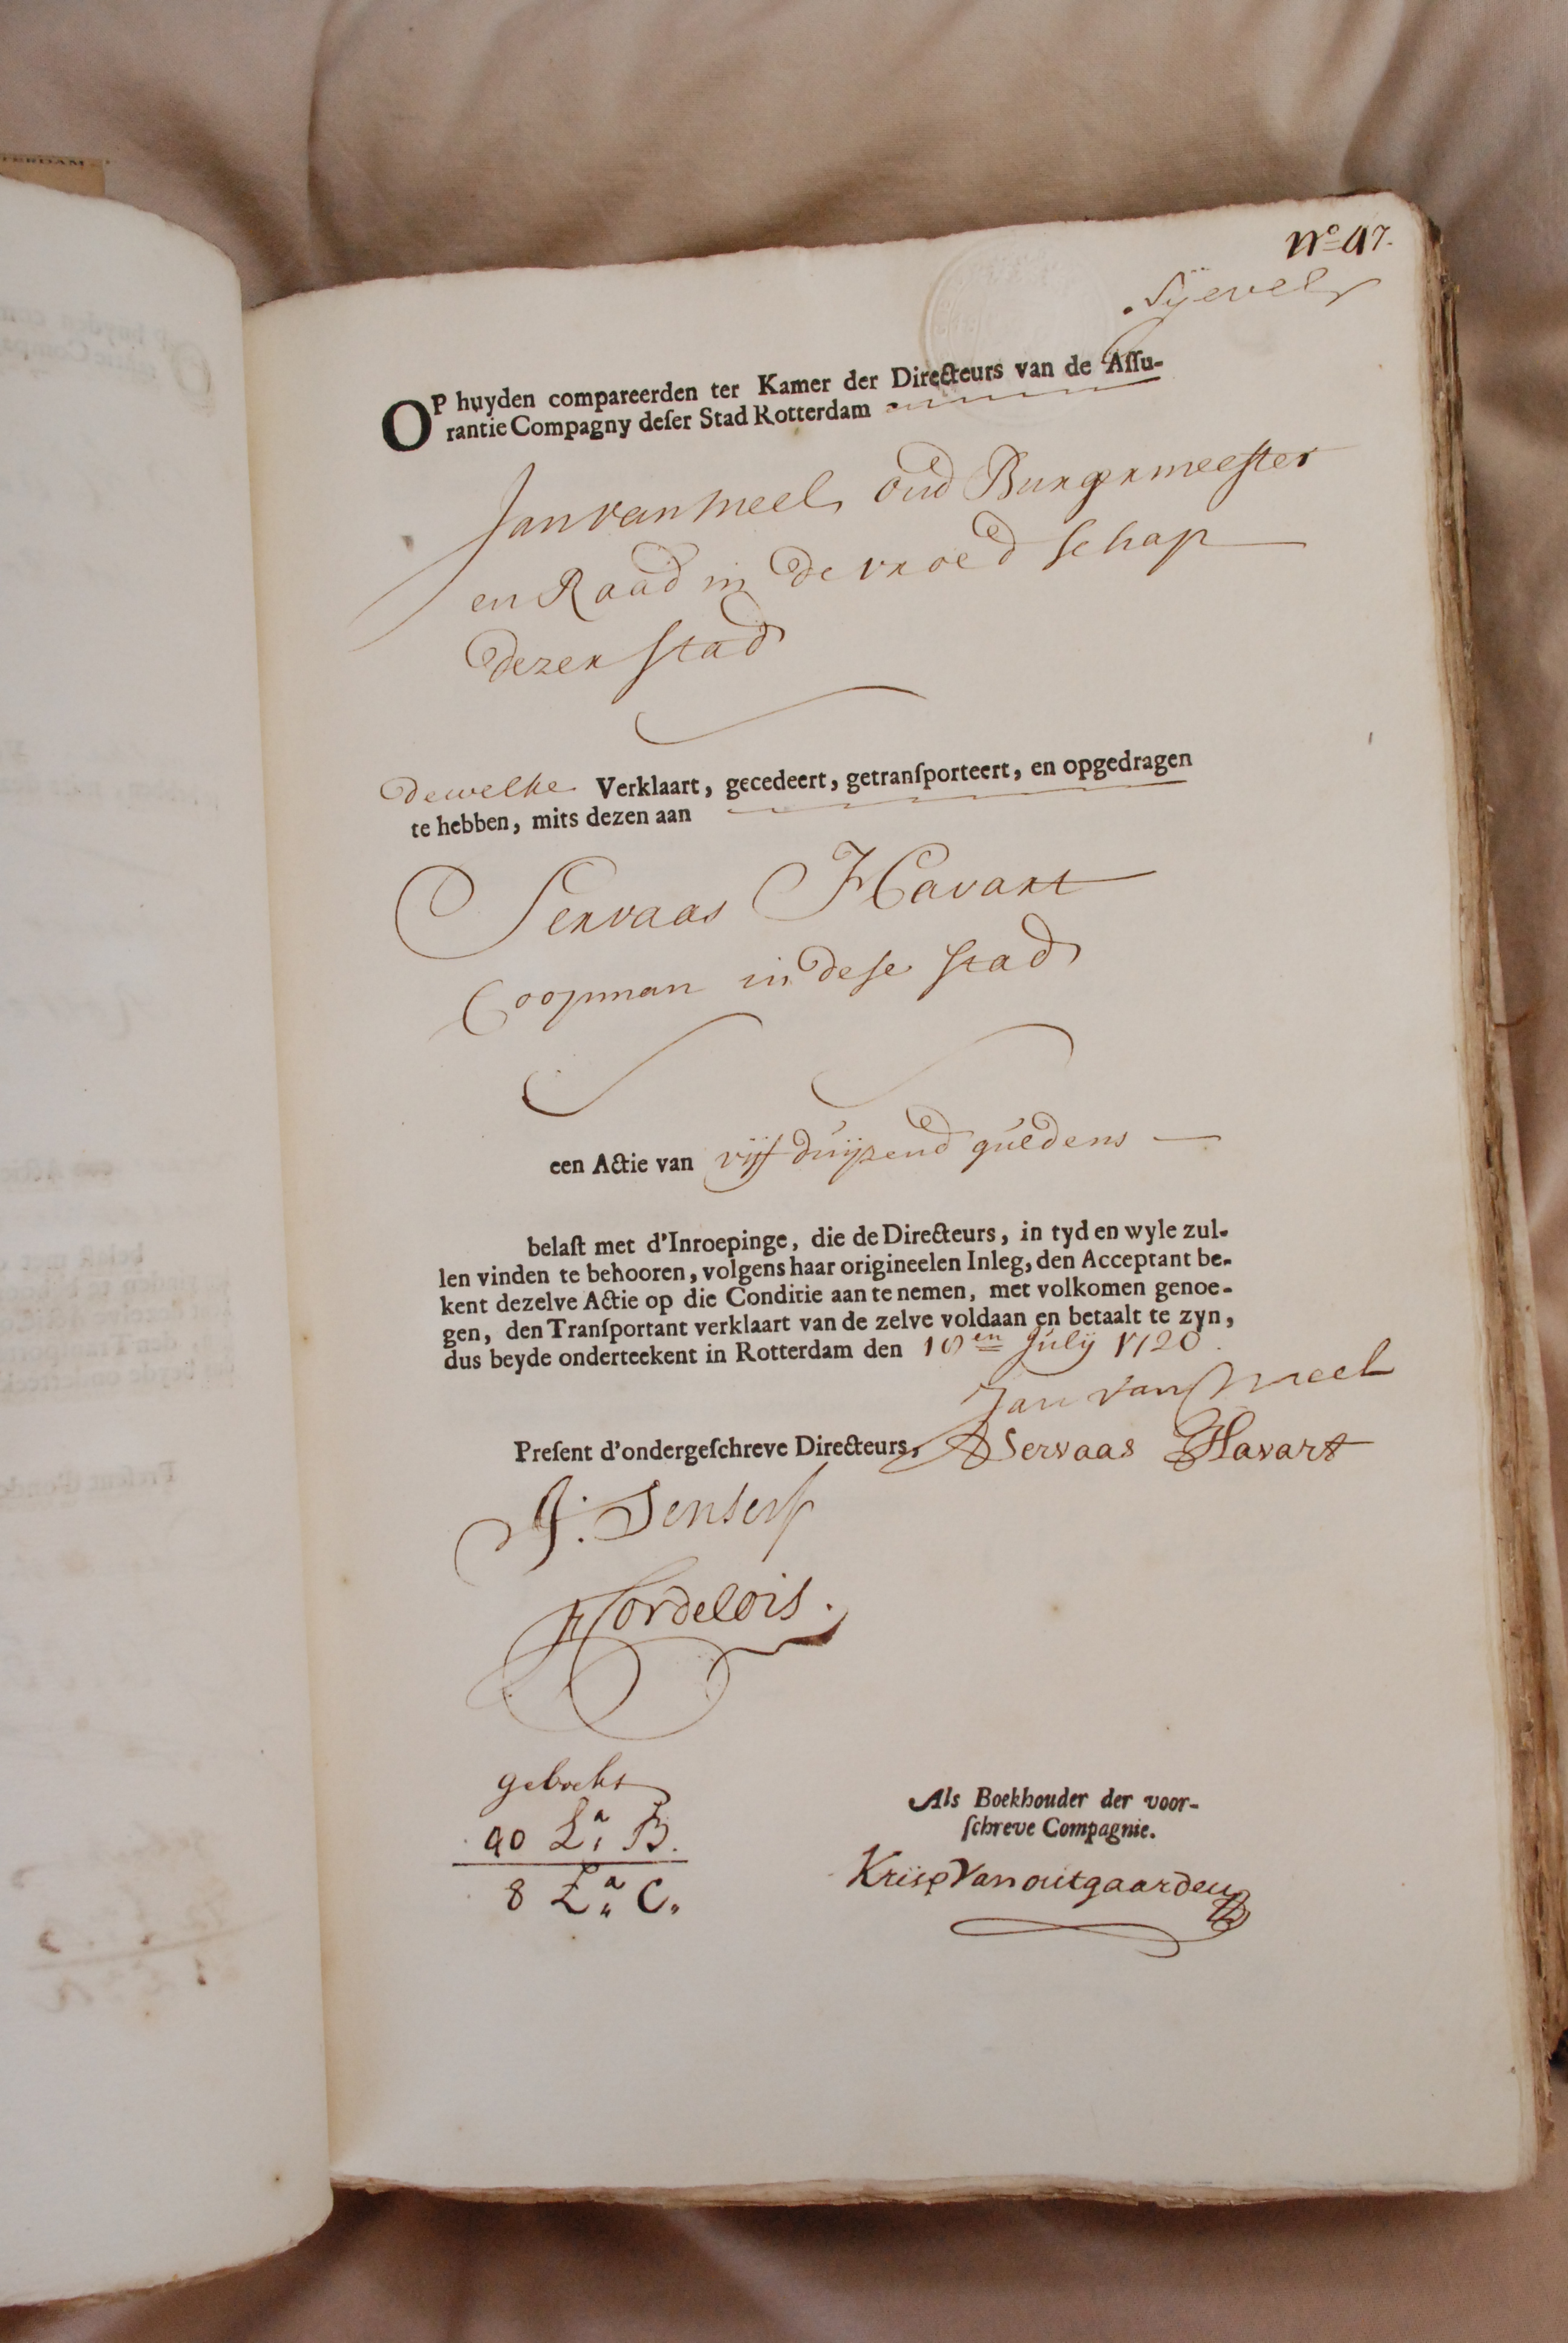 TERDAM
Nº 47.
OP huyden compareerden ter Kamer der Directeurs van de Assu-
rantie Compagny deser Stad Rotterdam
Jan van Meel, Oud Burgermeester
en Raad in de vroedschap
dezer stad
dewelke Verklaart, gecedeert, getransporteert, en opgedragen
te hebben, mits dezen aan
Servaas Havart
Coopman in dese stad
een Actie van vijf duijzend guldens
belast met d'Inroepinge, die de Directeurs, in tyd en wyle zul-
len vinden te behooren, volgens haar origineelen Inleg, den Acceptant be-
kent dezelve Actie op die Conditie aan te nemen, met volkomen genoe-
gen, den Transportant verklaart van de zelve voldaan en betaalt te zyn,
dus beyde onderteekent in Rotterdam den July 1720.
Jan van Meel
Present d'ondergeschreve Directeurs, Servaas Havart
J. Senserf
Cordelois.
geboekt
40 La. B.
8 La. C.
Als Boekhouder der voor-
schreve Compagnie.
Krisp Van outgaarden